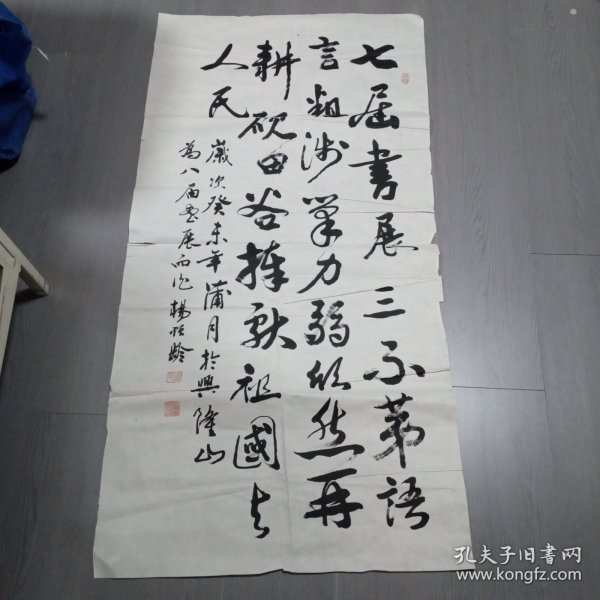 七届書展三不第語
言粗涉筆力弱欣然再
耕砚田谷捧献祖國与
人民
歲次癸未年蒲月於興隆山
為八届書展而作 楊 齡
孔夫子旧書网
www.kongfz.com